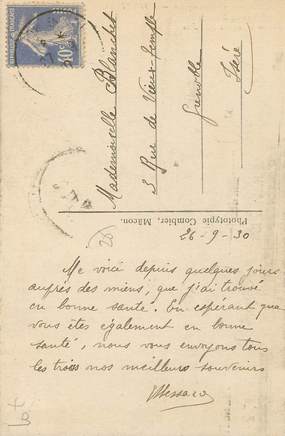 Mademoiselle Blanchet
3 Rue de Vieux-Temple
Grenoble
Isère
Phototypie Combier, Mâcon.
26-9-30
Me voici depuis quelques jours
auprès des miens, que j'ai trouvé
en bonne santé. En espérant que
vous êtes également en bonne
santé, nous vous envoyons tous
les trois nos meilleurs souvenirs